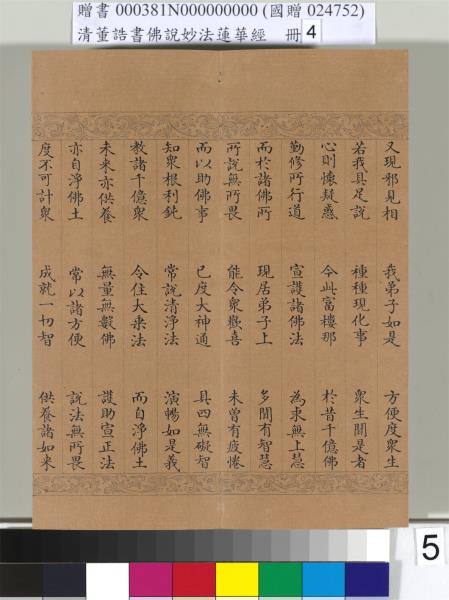 贈書 000381N000000000 (國贈 024752)
清董誥書佛說妙法蓮華經 冊 4
又現邪見相 我弟子如是 方便度眾生
若我具足說 種種現化事 眾生聞是者
心則懷疑惑 今此富樓那 於昔千億佛
勤修所行道 宣護諸佛法 為求無上慧
而於諸佛所 現居弟子上 多聞有智慧
所說無所畏 能令眾歡喜 未曾有疲惓
而以助佛事 已度大神通 具四無礙智
知眾根利鈍 常說清淨法 演暢如是義
教諸千億眾 令住大乘法 而自淨佛土
未來亦供養 無量無數佛 護助宣正法
亦自淨佛土 常以諸方便 說法無所畏
度不可計眾 成就一切智 供養諸如來
5